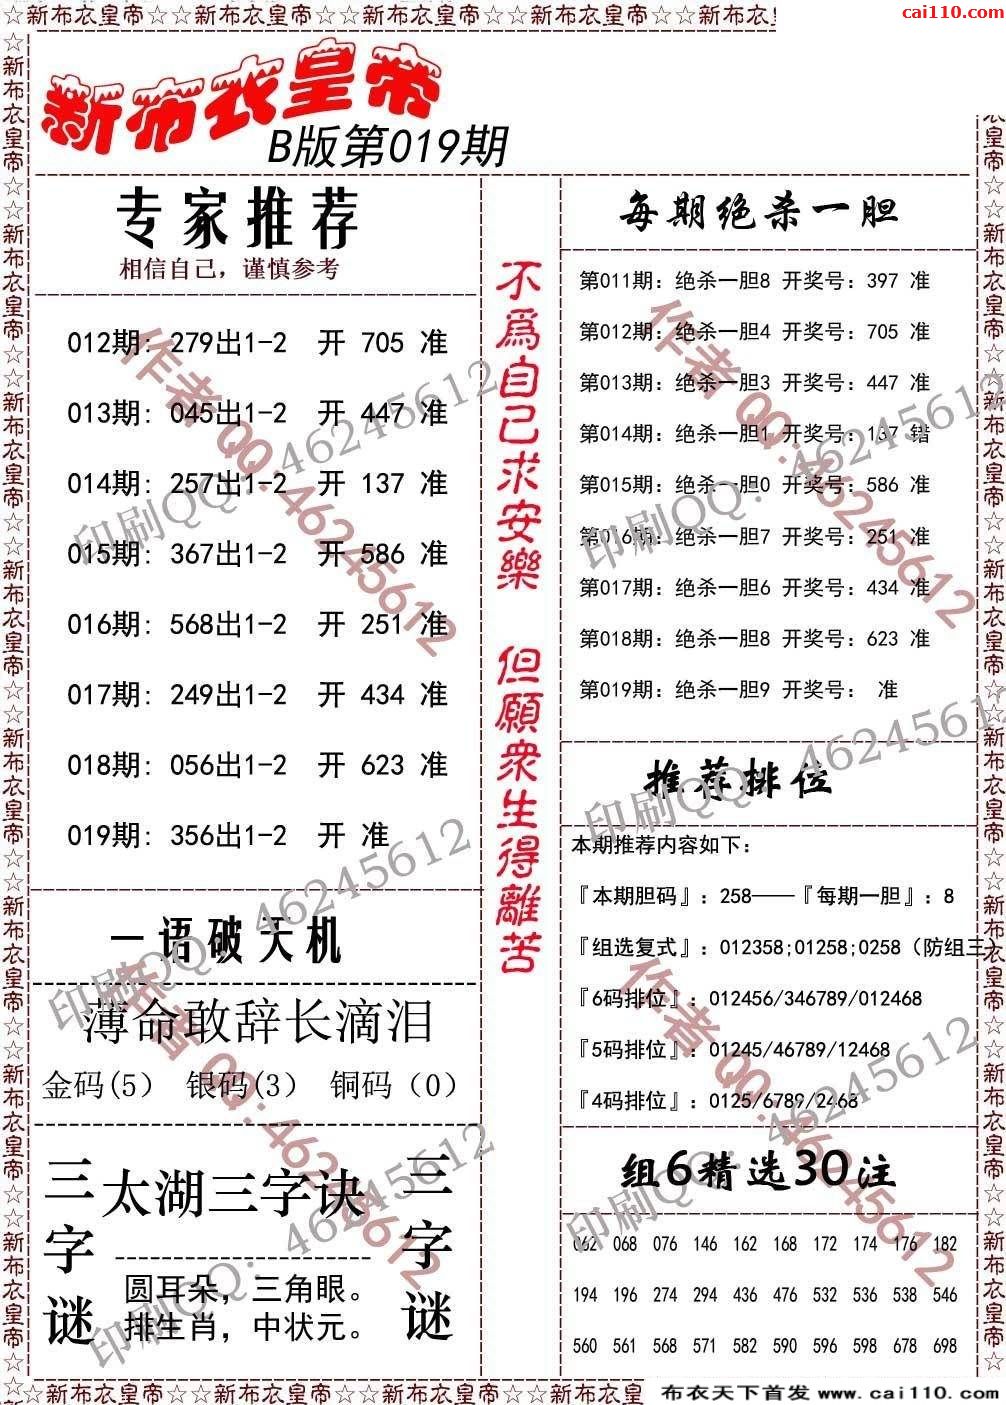 ☆新布衣皇帝☆新布衣皇帝☆新布衣皇帝☆新布衣皇帝☆新布衣皇帝☆新布衣皇帝
cai110.com
新布衣皇帝
B版第019期
专家推荐
相信自己，谨慎参考
012期: 279出1-2 开 705 准
013期: 045出1-2 开 447 准
014期: 257出1-2 开 137 准
015期: 367出1-2 开 586 准
016期: 568出1-2 开 251 准
017期: 249出1-2 开 434 准
018期: 056出1-2 开 623 准
019期: 356出1-2 开 准
一语破天机
薄命敢辞长滴泪
金码(5) 银码(3) 铜码（0）
三字谜
太湖三字诀
圆耳朵，三角眼。
排生肖，中状元。
三字谜
不爲自己求安樂 但願衆生得離苦
每期绝杀一胆
第011期: 绝杀一胆8 开奖号: 397 准
第012期: 绝杀一胆4 开奖号: 705 准
第013期: 绝杀一胆3 开奖号: 447 准
第014期: 绝杀一胆1 开奖号: 137 错
第015期: 绝杀一胆0 开奖号: 586 准
第016期: 绝杀一胆7 开奖号: 251 准
第017期: 绝杀一胆6 开奖号: 434 准
第018期: 绝杀一胆8 开奖号: 623 准
第019期: 绝杀一胆9 开奖号: 准
推荐排位
本期推荐内容如下:
『本期胆码』: 258——『每期一胆』: 8
『组选复式』: 012358;01258;0258（防组三）
『6码排位』: 012456/346789/012468
『5码排位』: 01245/46789/12468
『4码排位』: 0125/6789/2468
组6精选30注
062 068 076 146 162 168 172 174 176 182
194 196 274 294 436 476 532 536 538 546
560 561 568 571 582 590 596 598 678 698
作者QQ:46245612
印刷QQ: 46245612
作者QQ:46245612
印刷QQ: 46245612
印刷QQ: 46245612
印刷QQ: 46245612
作者QQ:46245612
作者QQ:46245612
印刷QQ: 46245612
印刷QQ: 46245612
☆新布衣皇帝☆新布衣皇帝☆新布衣皇帝☆新布衣皇帝☆新布衣皇
布衣天下首发 www.cai110.com